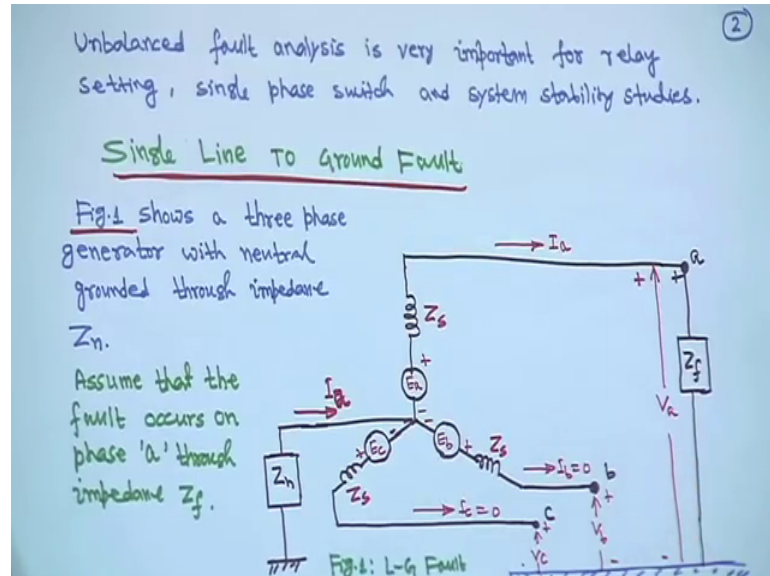 2
Unbalanced fault analysis is very important for relay
setting, single phase switch and system stability studies.
Single Line To Ground Fault
Fig.1 shows a three phase
generator with neutral
grounded through impedane
Zn.
Assume that the
fault occurs on
phase 'a' through
impedane Zf.
Ia
a
+
+
Zs
Zf
+
Ea
Va
-
Ia
-
-
+
Ec
Eb
+
Zs
Zn
Zs
Ib=0
b
+
Ic=0
c
+
Vb
Vc
-
-
-
Fig.1: L-G Fault